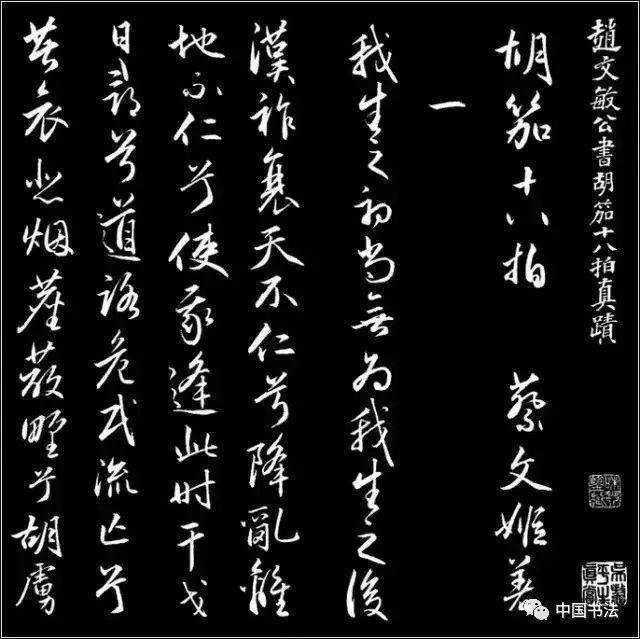 趙文敏公書胡笳十八拍真蹟
胡笳十八拍 蔡文姬著
一
我生之初尚無為我生之後
漢祚衰天不仁兮降亂離
地不仁兮使我逢此時干戈
日尋兮道路危民流亡兮
共哀悲烟塵蔽野兮胡虜
中国书法